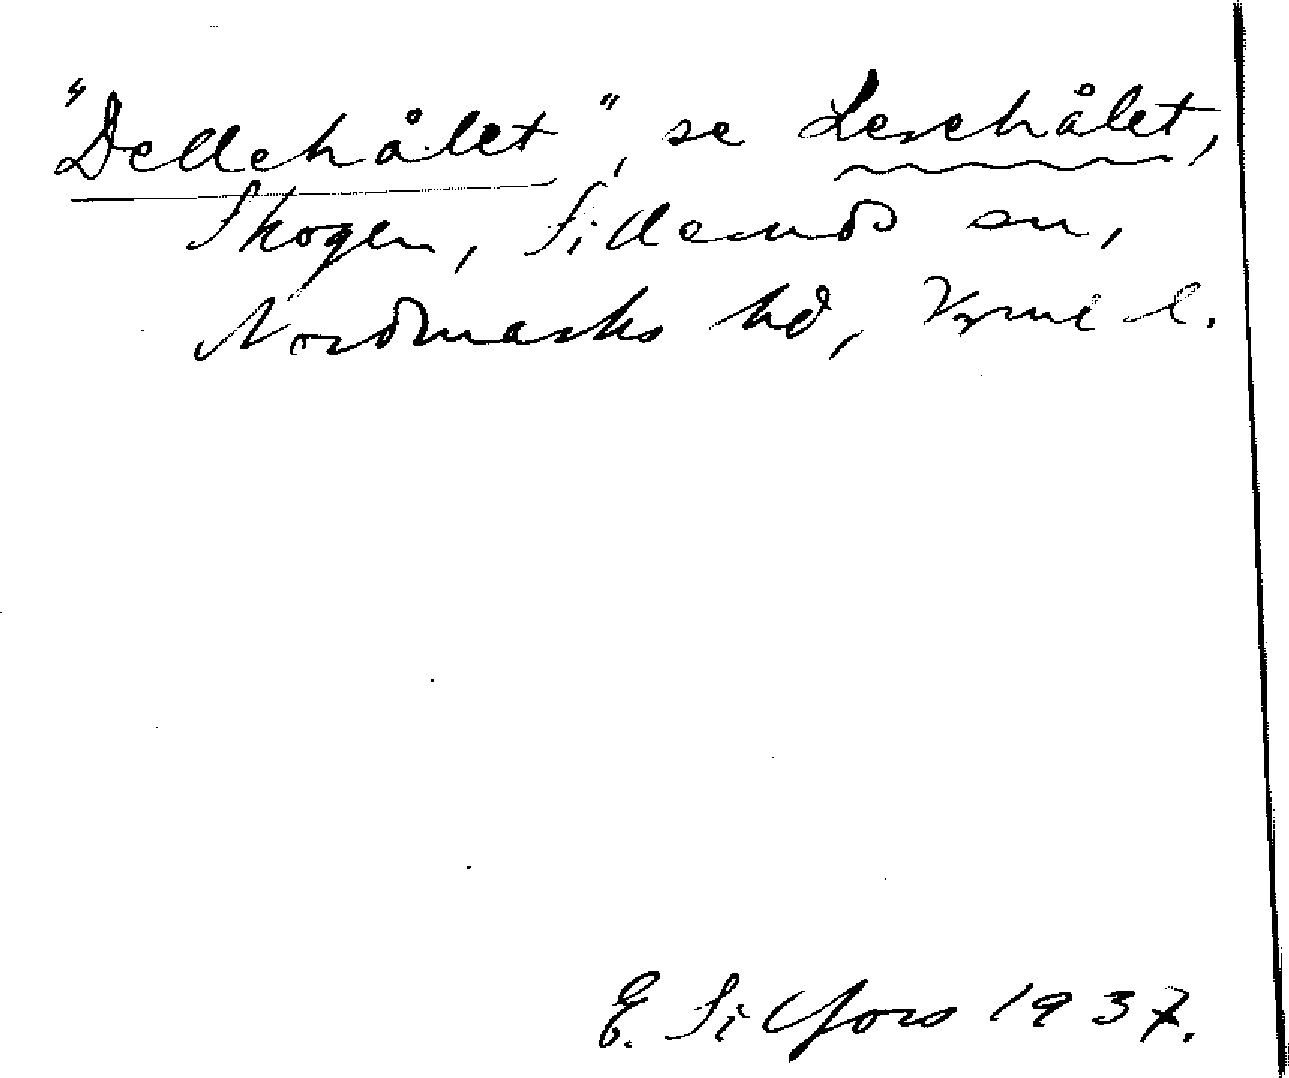 "Dellehålet", se Lerehålet,
Skogen, Silleruds sn,
Nordmarks hd, Vrml l.
E. Silfors 1937.